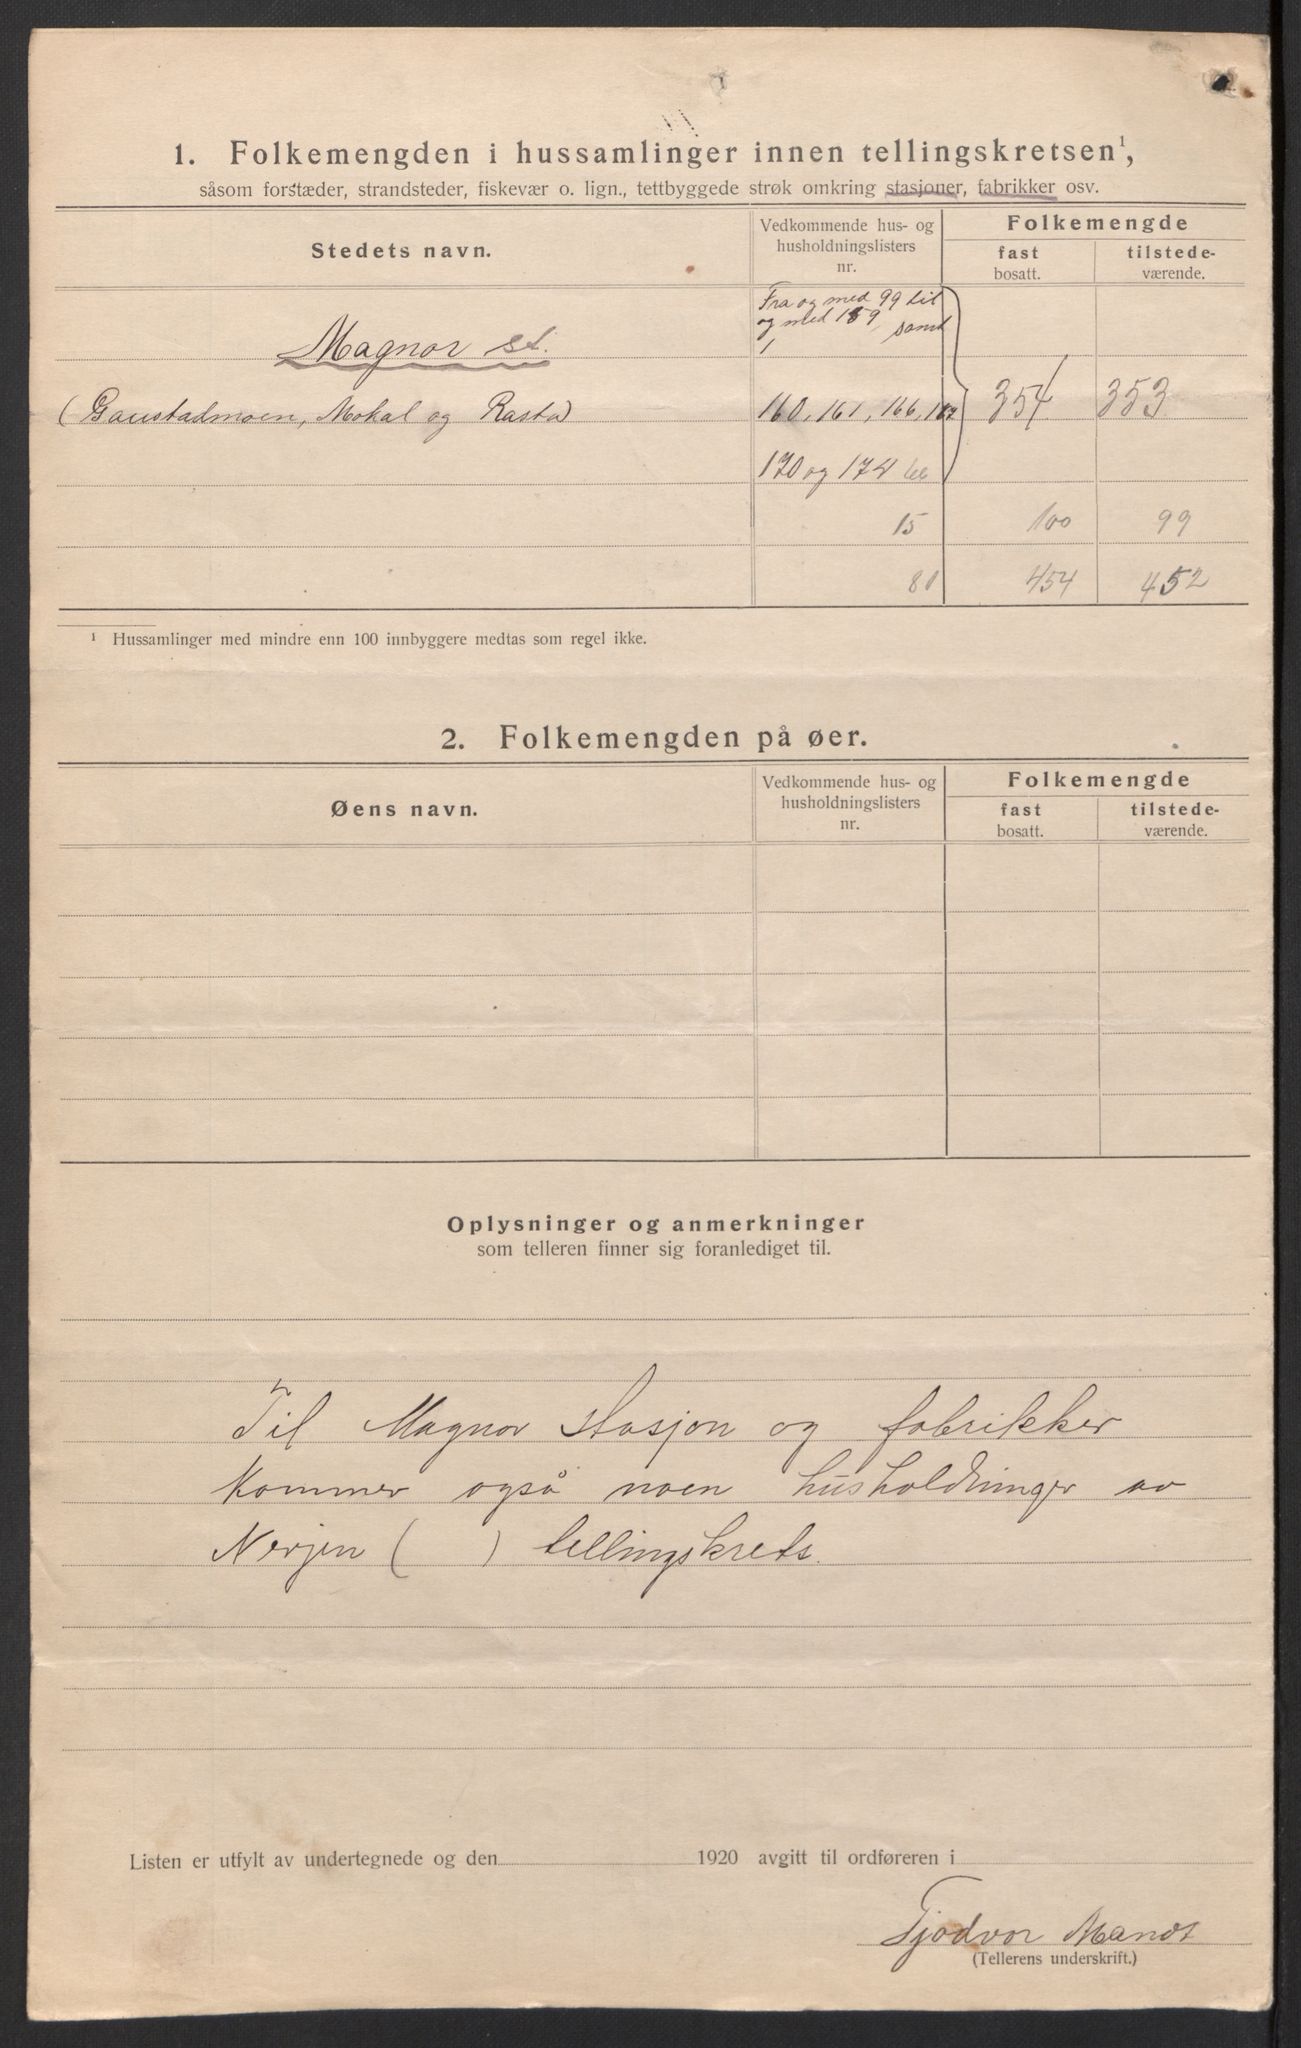 1. Folkemengden i hussamlinger innen tellingskretsen¹,
såsom forstæder, strandsteder, fiskevær o. lign., tettbyggede strøk omkring stasjoner, fabrikker osv.
Stedets navn.
Vedkommende hus- og husholdningslisters nr.
Folkemengde
fast bosatt.
tilstede-værende.
Fra og med 99 til
og med 159, samt
1
Magnor st.
(Gaustadmoen, Mokal og Rasta)
160, 161, 166, 167
354
353
170 og 174
15
100
99
80
454
452
¹ Hussamlinger med mindre enn 100 innbyggere medtas som regel ikke.
2. Folkemengden på øer.
Øens navn.
Vedkommende hus- og husholdningslisters nr.
Folkemengde
fast bosatt.
tilstede-værende.
Oplysninger og anmerkninger
som telleren finner sig foranlediget til.
Til Magnor stasjon og fabrikker
kommer også noen husholdninger av
Nerjen ( ) tellingskrets.
Listen er utfylt av undertegnede og den 1920 avgitt til ordføreren i
Tjodvor Mandt
(Tellerens underskrift.)